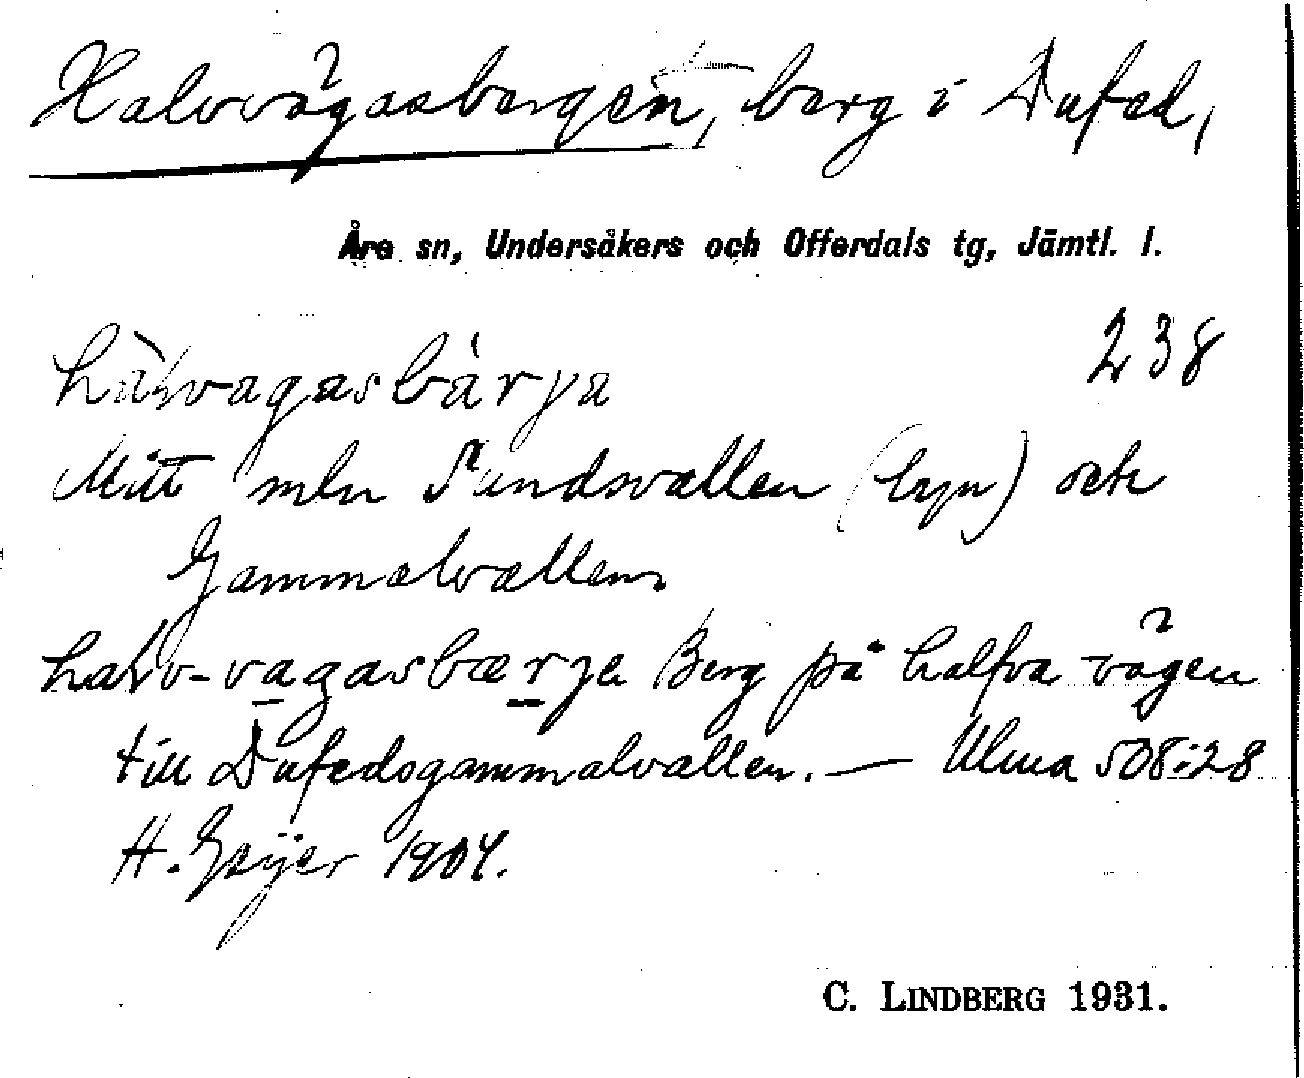 Halvvägasbergen, berg i Dufed,
Åre sn, Undersåkers och Offerdals tg, Jämtl. l.
238
hàlvagasbárja
Mitt mln Sundsvallen (byn) och
Gammalvallen
halv-vagasbærje Berg på halfva vägen
till Dufedsgammalvallen. — Ulma 508:28
H. Geijer 1904.
C. LINDBERG 1931.